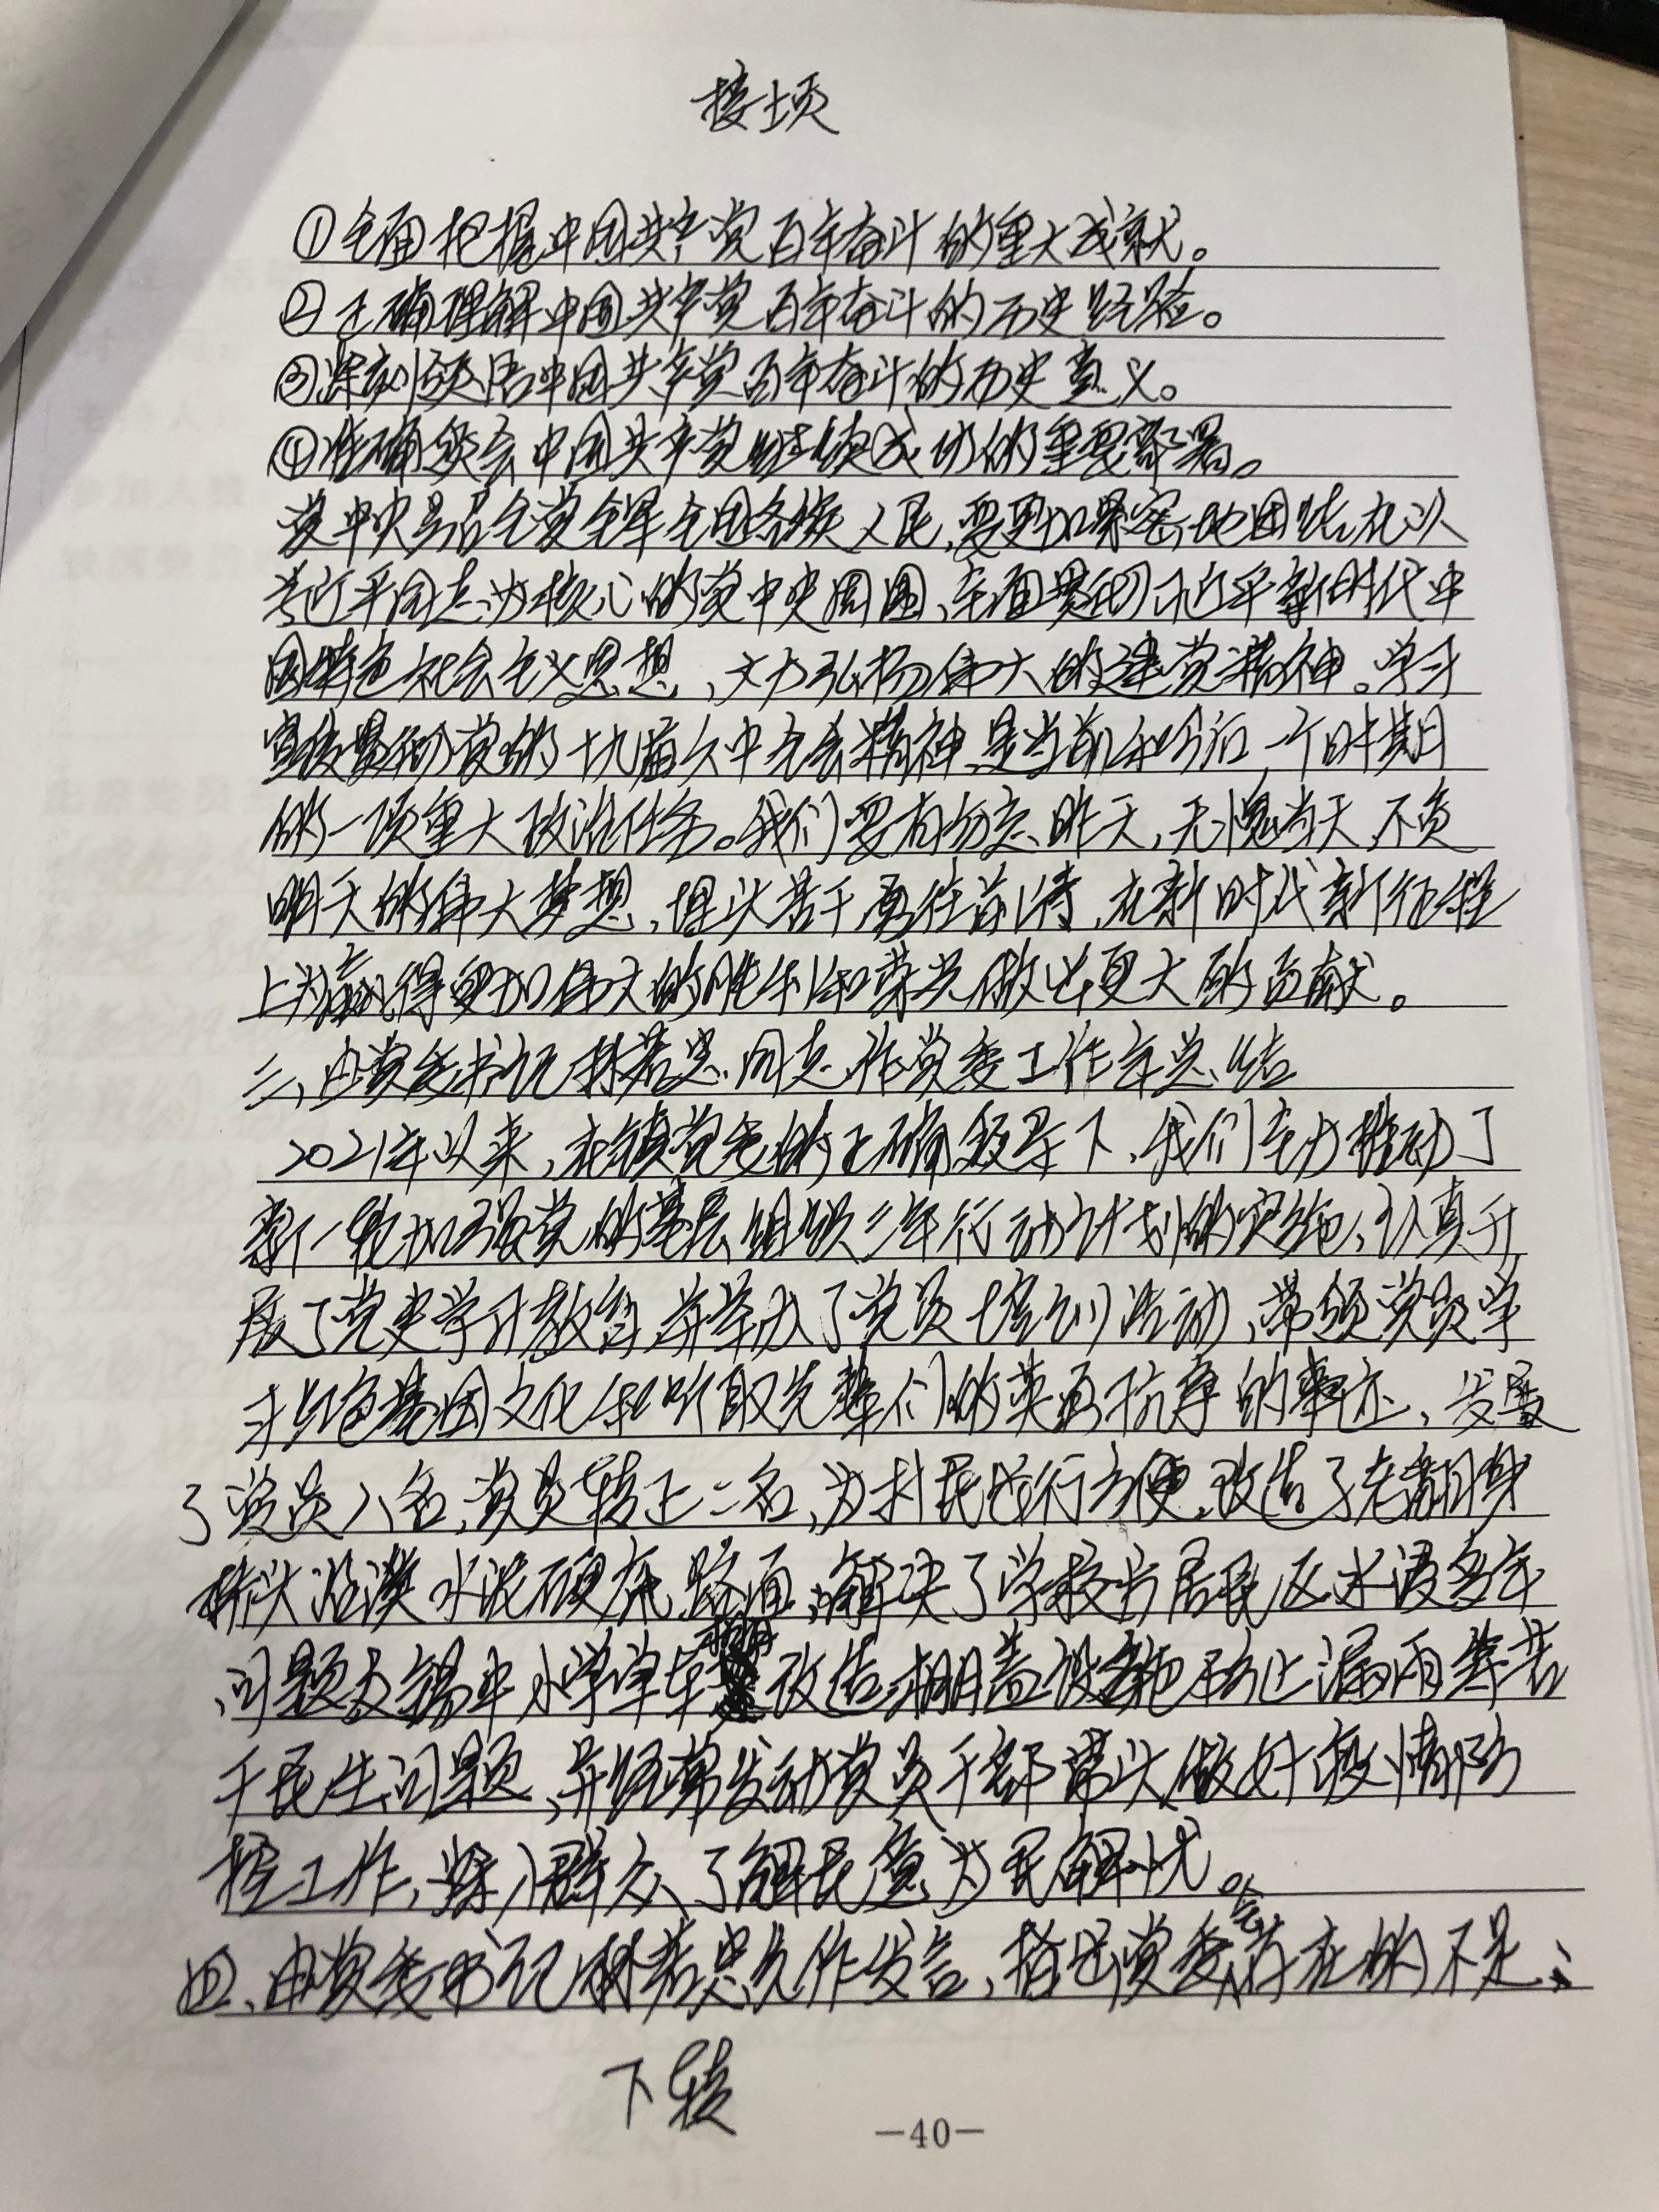 接上页
①全面把握中国共产党百年奋斗的重大成就。
②正确理解中国共产党百年奋斗的历史经验。
③深刻领悟中国共产党百年奋斗的历史意义。
④准确领会中国共产党继续成功的重要部署。
党中央号召全党全军全国各族人民,要更加紧密地团结在以
习近平同志为核心的党中央周围,全面贯彻习近平新时代中
国特色社会主义思想,大力弘扬伟大的建党精神。学习
宣传贯彻党的十九届六中全会精神是当前和今后一个时期
的一项重大政治任务。我们要有勿忘昨天,无愧当天,不负
明天的伟大梦想,埋头苦干勇往前行,在新时代新征程
上为赢得更加伟大的胜利和荣光做出更大的贡献。
三、由党委书记林若忠同志作党委工作年总结
2021年以来,在镇党委的正确领导下,我们全力推动了
新一轮加强党的基层组织三年行动计划的实施,认真开
展了党史学习教育,并举办了党员培训活动,带领党员学
习红色基因文化和听取先辈们的英勇抗争的事迹,发展
了党员八名,党员转正二名,为村民出行方便,改造了老翻身
桥头沿溪水泥硬底路面,解决了学校旁居民区水浸多年
问题及锡中小学单车棚改造棚盖设施防止漏雨等若
干民生问题,并经常发动党员干部带头做好疫情防
控工作,深入群众、了解民意、为民解忧。
四、由党委书记林若忠先作发言,指出党委班子存在的不足:
下转
—40—